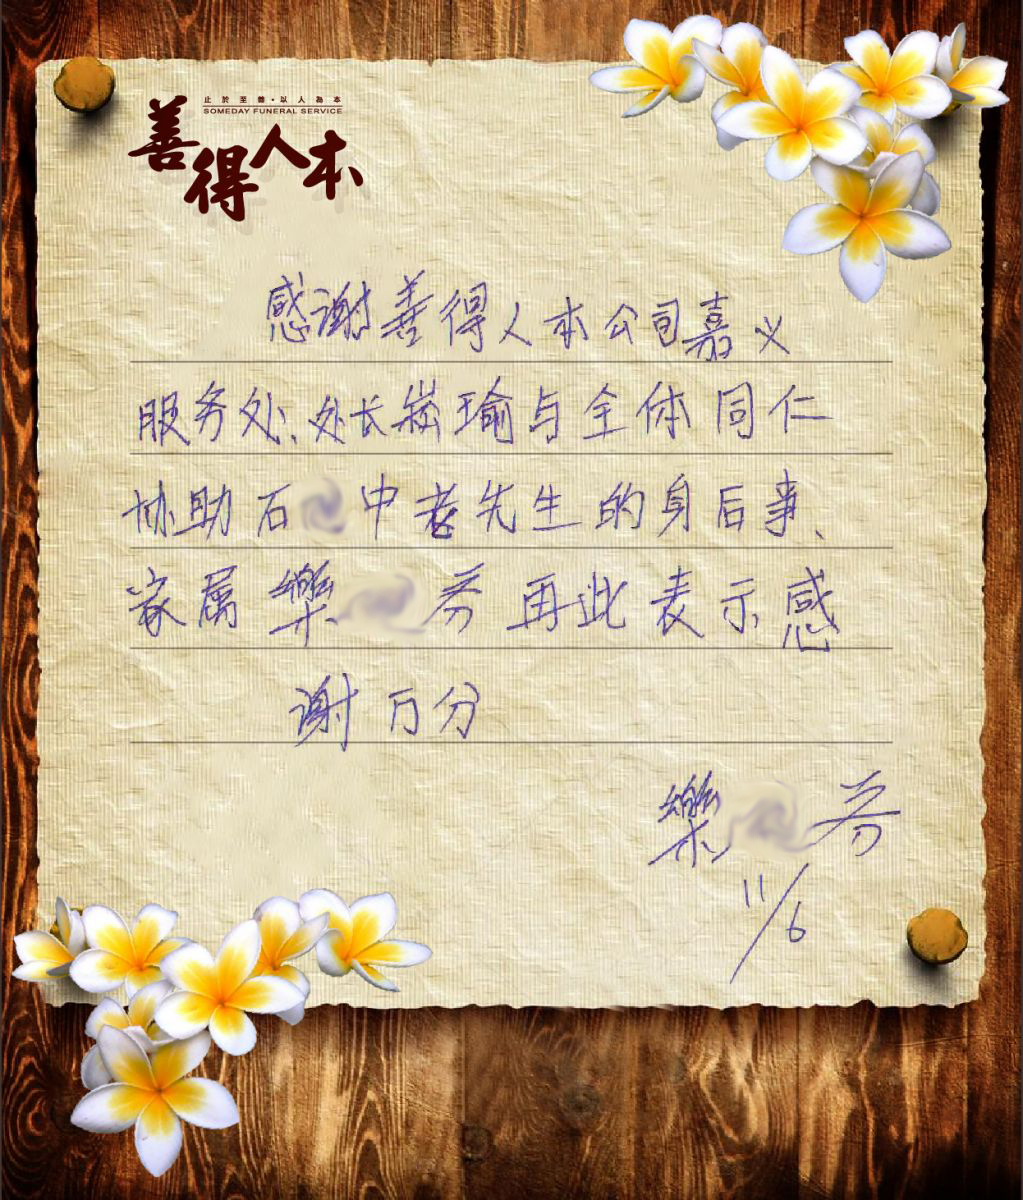 止於至善·以人為本
SOMEDAY FUNERAL SERVICE
善得人本
感谢善得人本公司嘉义
服务处、处长崧瑜与全体同仁
协助石 中老先生的身后事、
家属樂 芬再此表示感
谢万分
樂 芬
11/6